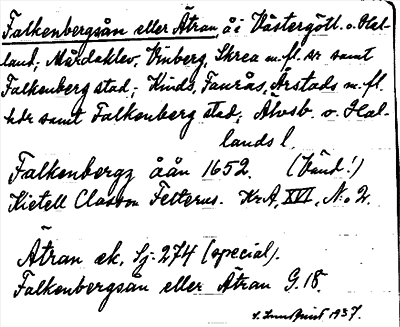 Falkenbergsån eller Ätran å i Västergötl. o. Hal-
land; Mårdaklev, Vinberg, Skrea m. fl. sr samt
Falkenberg stad; Kinds, Faurås, Årstads m. fl.
hdr samt Falkenberg stad; Älvsb. o. Hal-
lands l.
Falkenbergz åån 1652. (Vänd!)
Kietell Classon Felterus. KrA, XVI, N:o 2.
Ätran ek. Sj. 274 (special).
Falkenbergsån eller Ätran G. 18.
Lundquist 1937.